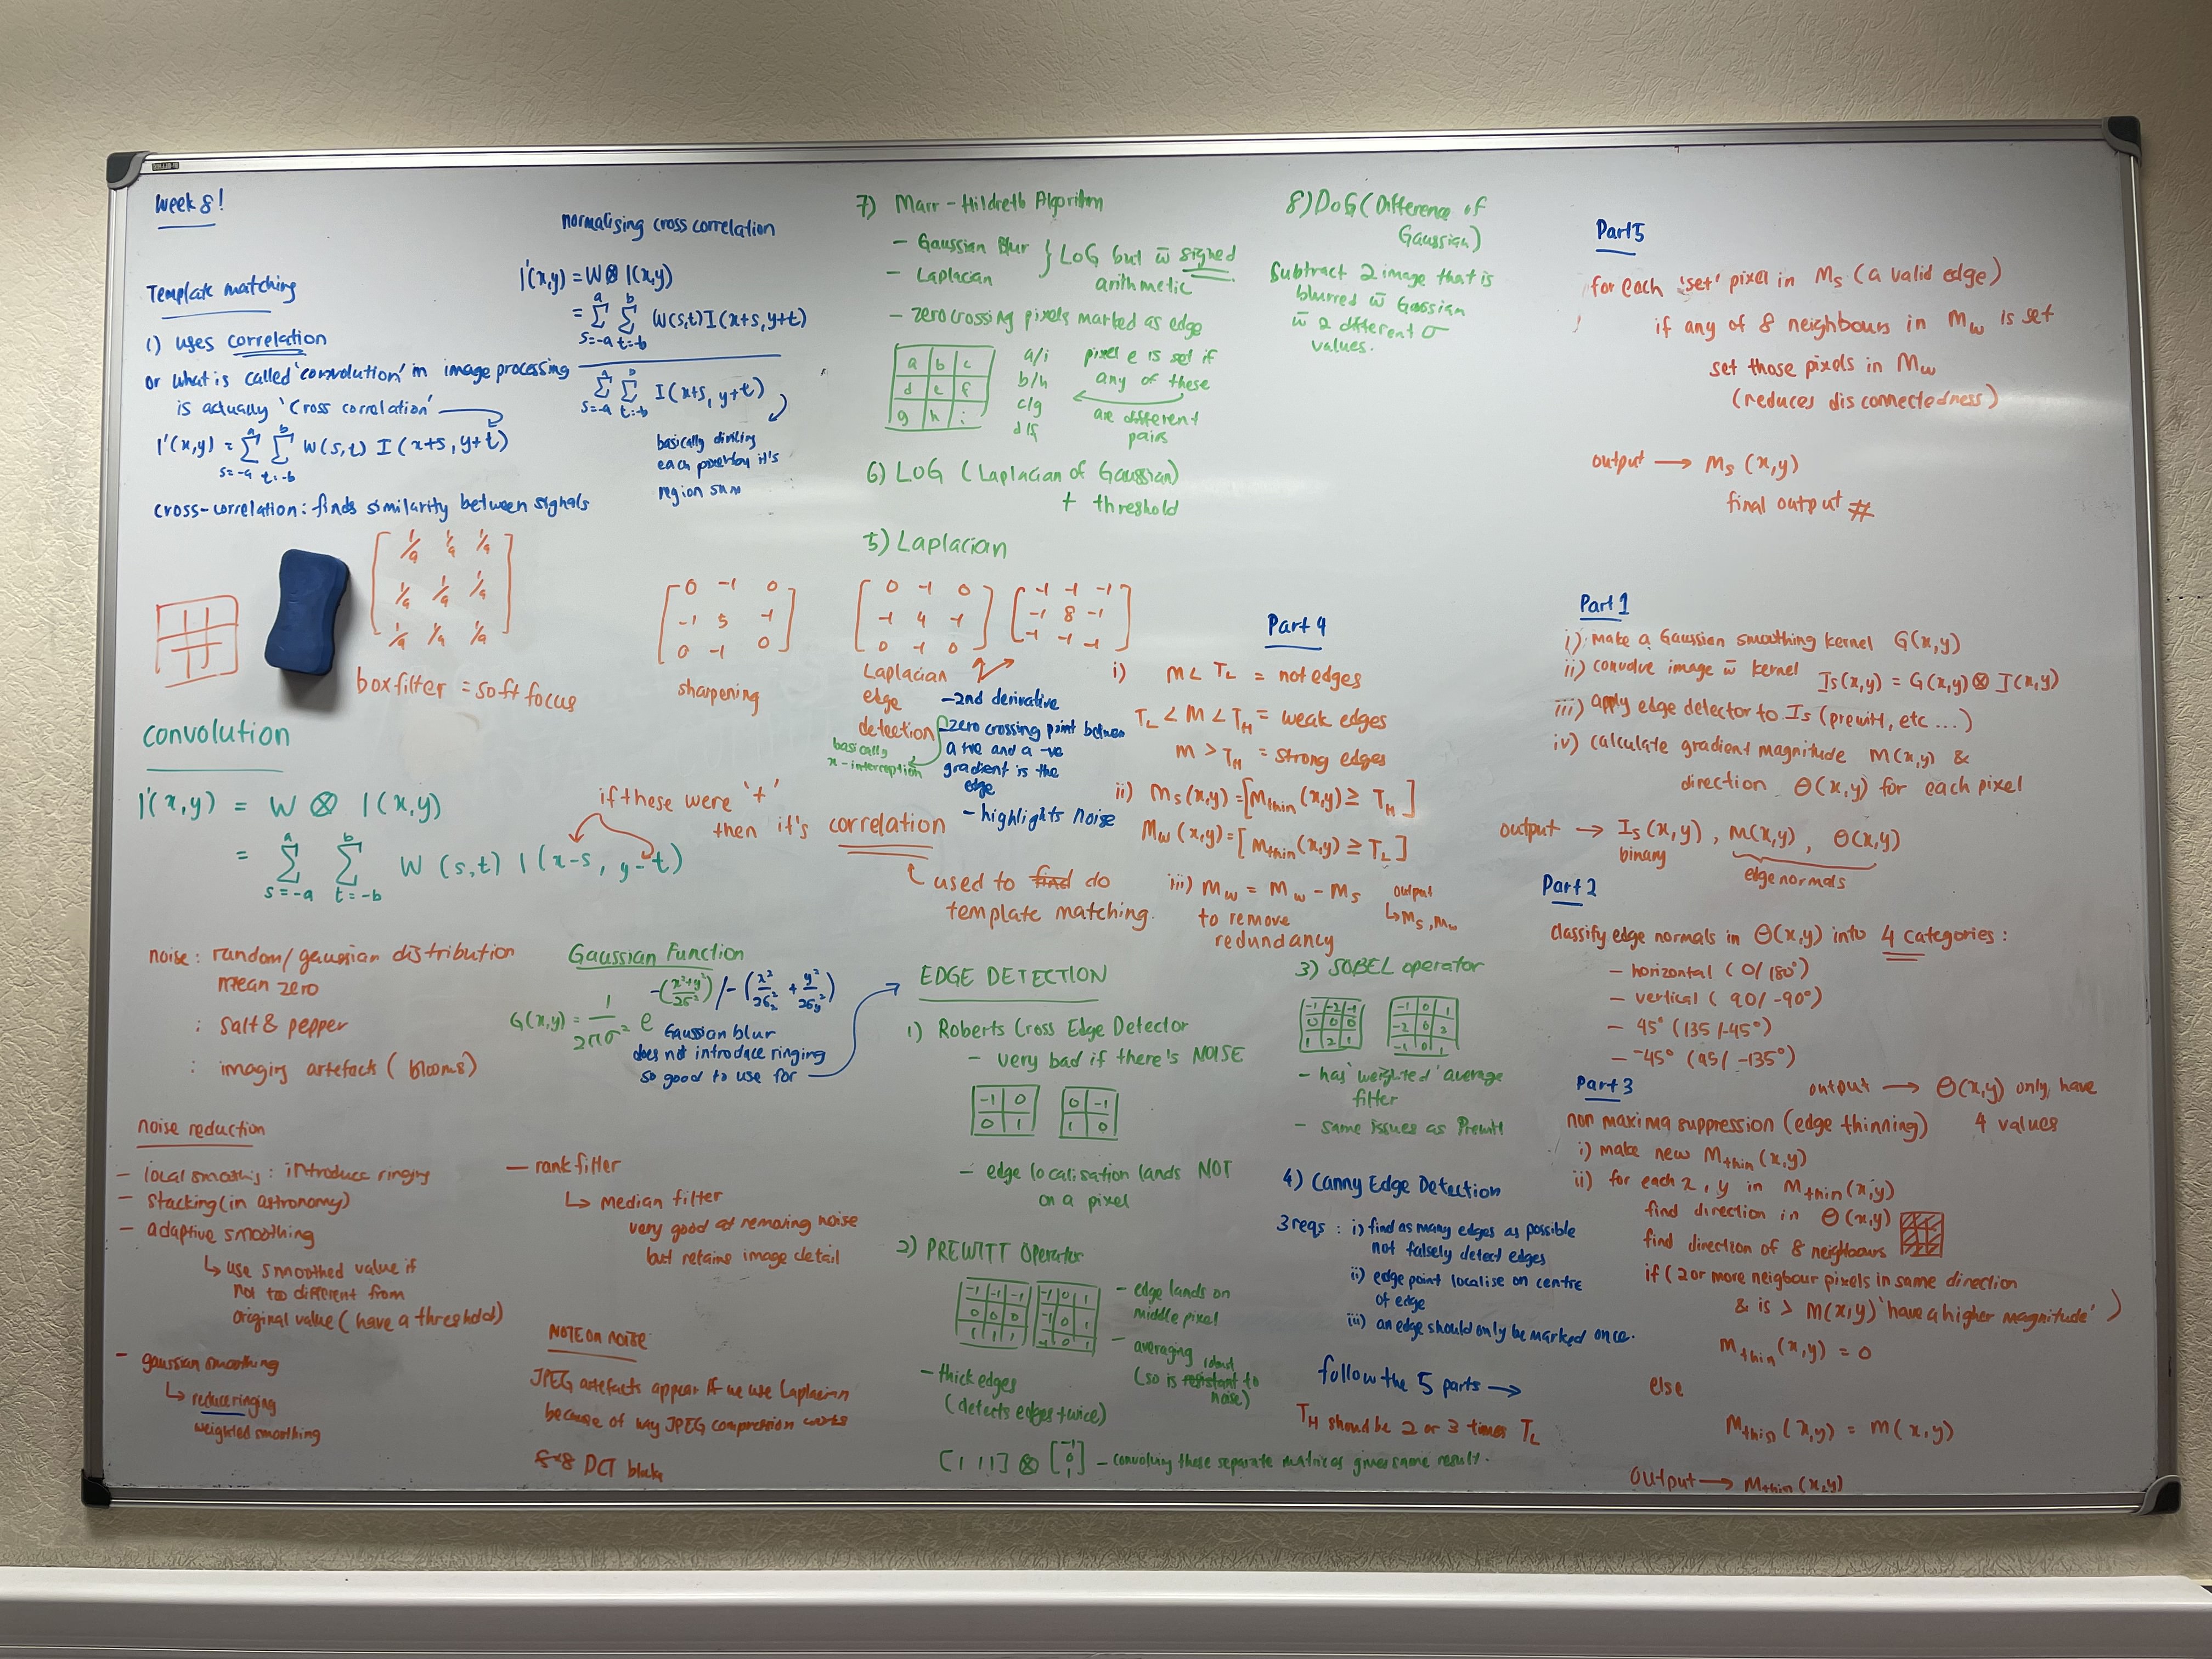 Week 8!
Template matching
1) uses correlation
or what is called 'convolution' in image processing
is actually 'cross correlation'
I'(x,y) = Σ Σ W(s,t) I(x+s, y+t)
s=-a t=-b
cross-correlation: finds similarity between signals
normalising cross correlation
I'(x,y) = W ⊗ I(x,y)
a b
= Σ Σ W(s,t) I(x+s, y+t)
s=-a t=-b
a b
Σ Σ I(x+s, y+t)
s=-a t=-b
basically dividing
each pixel by it's
region sum
1/9 1/9 1/9
1/9 1/9 1/9
1/9 1/9 1/9
box filter = soft focus
0 -1 0
-1 5 -1
0 -1 0
sharpening
convolution
I'(x,y) = W ⊗ I(x,y)
a b
= Σ Σ W(s,t) I(x-s, y-t)
s=-a t=-b
if these were '+'
then it's correlation
used to find do
template matching.
noise: random/gaussian distribution
mean zero
: salt & pepper
: imaging artefacts (blooms)
noise reduction
- local smoothing: introduce ringing
- stacking (in astronomy)
- adaptive smoothing
↳ use smoothed value if
not too different from
original value (have a threshold)
- gaussian smoothing
↳ reduce ringing
weighted smoothing
- rank filter
↳ median filter
very good at removing noise
but retains image detail
NOTE ON NOISE
JPEG artefacts appear if we use Laplacian
because of way JPEG compression works
8×8 DCT blocks
Gaussian Function
G(x,y) = 1/2πσ² e -(x²+y²/2σ²) / -(x²/2σx² + y²/2σy²)
Gaussian blur
does not introduce ringing
so good to use for →
7) Marr-Hildreth Algorithm
- Gaussian Blur
- Laplacian
} LoG but w̄ signed
arithmetic
- zero crossing pixels marked as edge
a b c
d e f
g h i
a/i
b/h
c/g
d/f
pixel e is set if
any of these
are different
pairs
6) LOG (Laplacian of Gaussian)
+ threshold
5) Laplacian
0 -1 0
-1 4 -1
0 -1 0
-1 -1 -1
-1 8 -1
-1 -1 -1
Laplacian
edge
detection
basically
x-interception
- 2nd derivative
- zero crossing point between
a +ve and a -ve
gradient is the
edge
- highlights noise
EDGE DETECTION
1) Roberts Cross Edge Detector
- very bad if there's NOISE
-1 0
0 1
0 -1
1 0
- edge localisation lands NOT
on a pixel
2) PREWITT Operator
-1 -1 -1
0 0 0
1 1 1
-1 0 1
-1 0 1
-1 0 1
- edge lands on
middle pixel
- averaging
(so is resistant robust to
noise)
- thick edges
(detects edges twice)
[1 1 1] ⊗ [-1 0 1] - convolving these separate matrices gives same result.
8) DoG (Difference of
Gaussian)
Subtract 2 image that is
blurred w̄ Gaussian
w̄ 2 different σ
values.
Part 4
i) M < TL = not edges
TL < M < TH = weak edges
M > TH = strong edges
ii) Ms(x,y) = [Mthin(x,y) ≥ TH]
Mw(x,y) = [Mthin(x,y) ≥ TL]
iii) Mw = Mw - Ms
to remove
redundancy
output
↳ Ms, Mw
3) SOBEL operator
-1 -2 -1
0 0 0
1 2 1
-1 0 1
-2 0 2
-1 0 1
- has 'weighted' average
filter
- same issues as Prewitt
4) Canny Edge Detection
3 reqs: i) find as many edges as possible
not falsely detect edges
ii) edge point localise on centre
of edge
iii) an edge should only be marked once.
follow the 5 parts →
TH should be 2 or 3 times TL
Part 5
for each 'set' pixel in Ms (a valid edge)
if any of 8 neighbours in Mw is set
set those pixels in Mw
(reduces disconnectedness)
output → Ms(x,y)
final output #
Part 1
i) make a Gaussian smoothing kernel G(x,y)
ii) convolve image w̄ kernel Is(x,y) = G(x,y) ⊗ I(x,y)
iii) apply edge detector to Is (prewitt, etc...)
iv) calculate gradient magnitude M(x,y) &
direction θ(x,y) for each pixel
output → Is(x,y), M(x,y), θ(x,y)
binary
edge normals
Part 2
classify edge normals in θ(x,y) into 4 categories:
- horizontal (0/180°)
- vertical (90/-90°)
- 45° (135/-45°)
- -45° (45/-135°)
output → θ(x,y) only have
4 values
Part 3
non maxima suppression (edge thinning)
i) make new Mthin(x,y)
ii) for each x, y in Mthin(x,y)
find direction in θ(x,y)
find direction of 8 neighbours
if (2 or more neigbour pixels in same direction
& is > M(x,y) 'have a higher magnitude')
Mthin(x,y) = 0
else
Mthin(x,y) = M(x,y)
Output → Mthin(x,y)